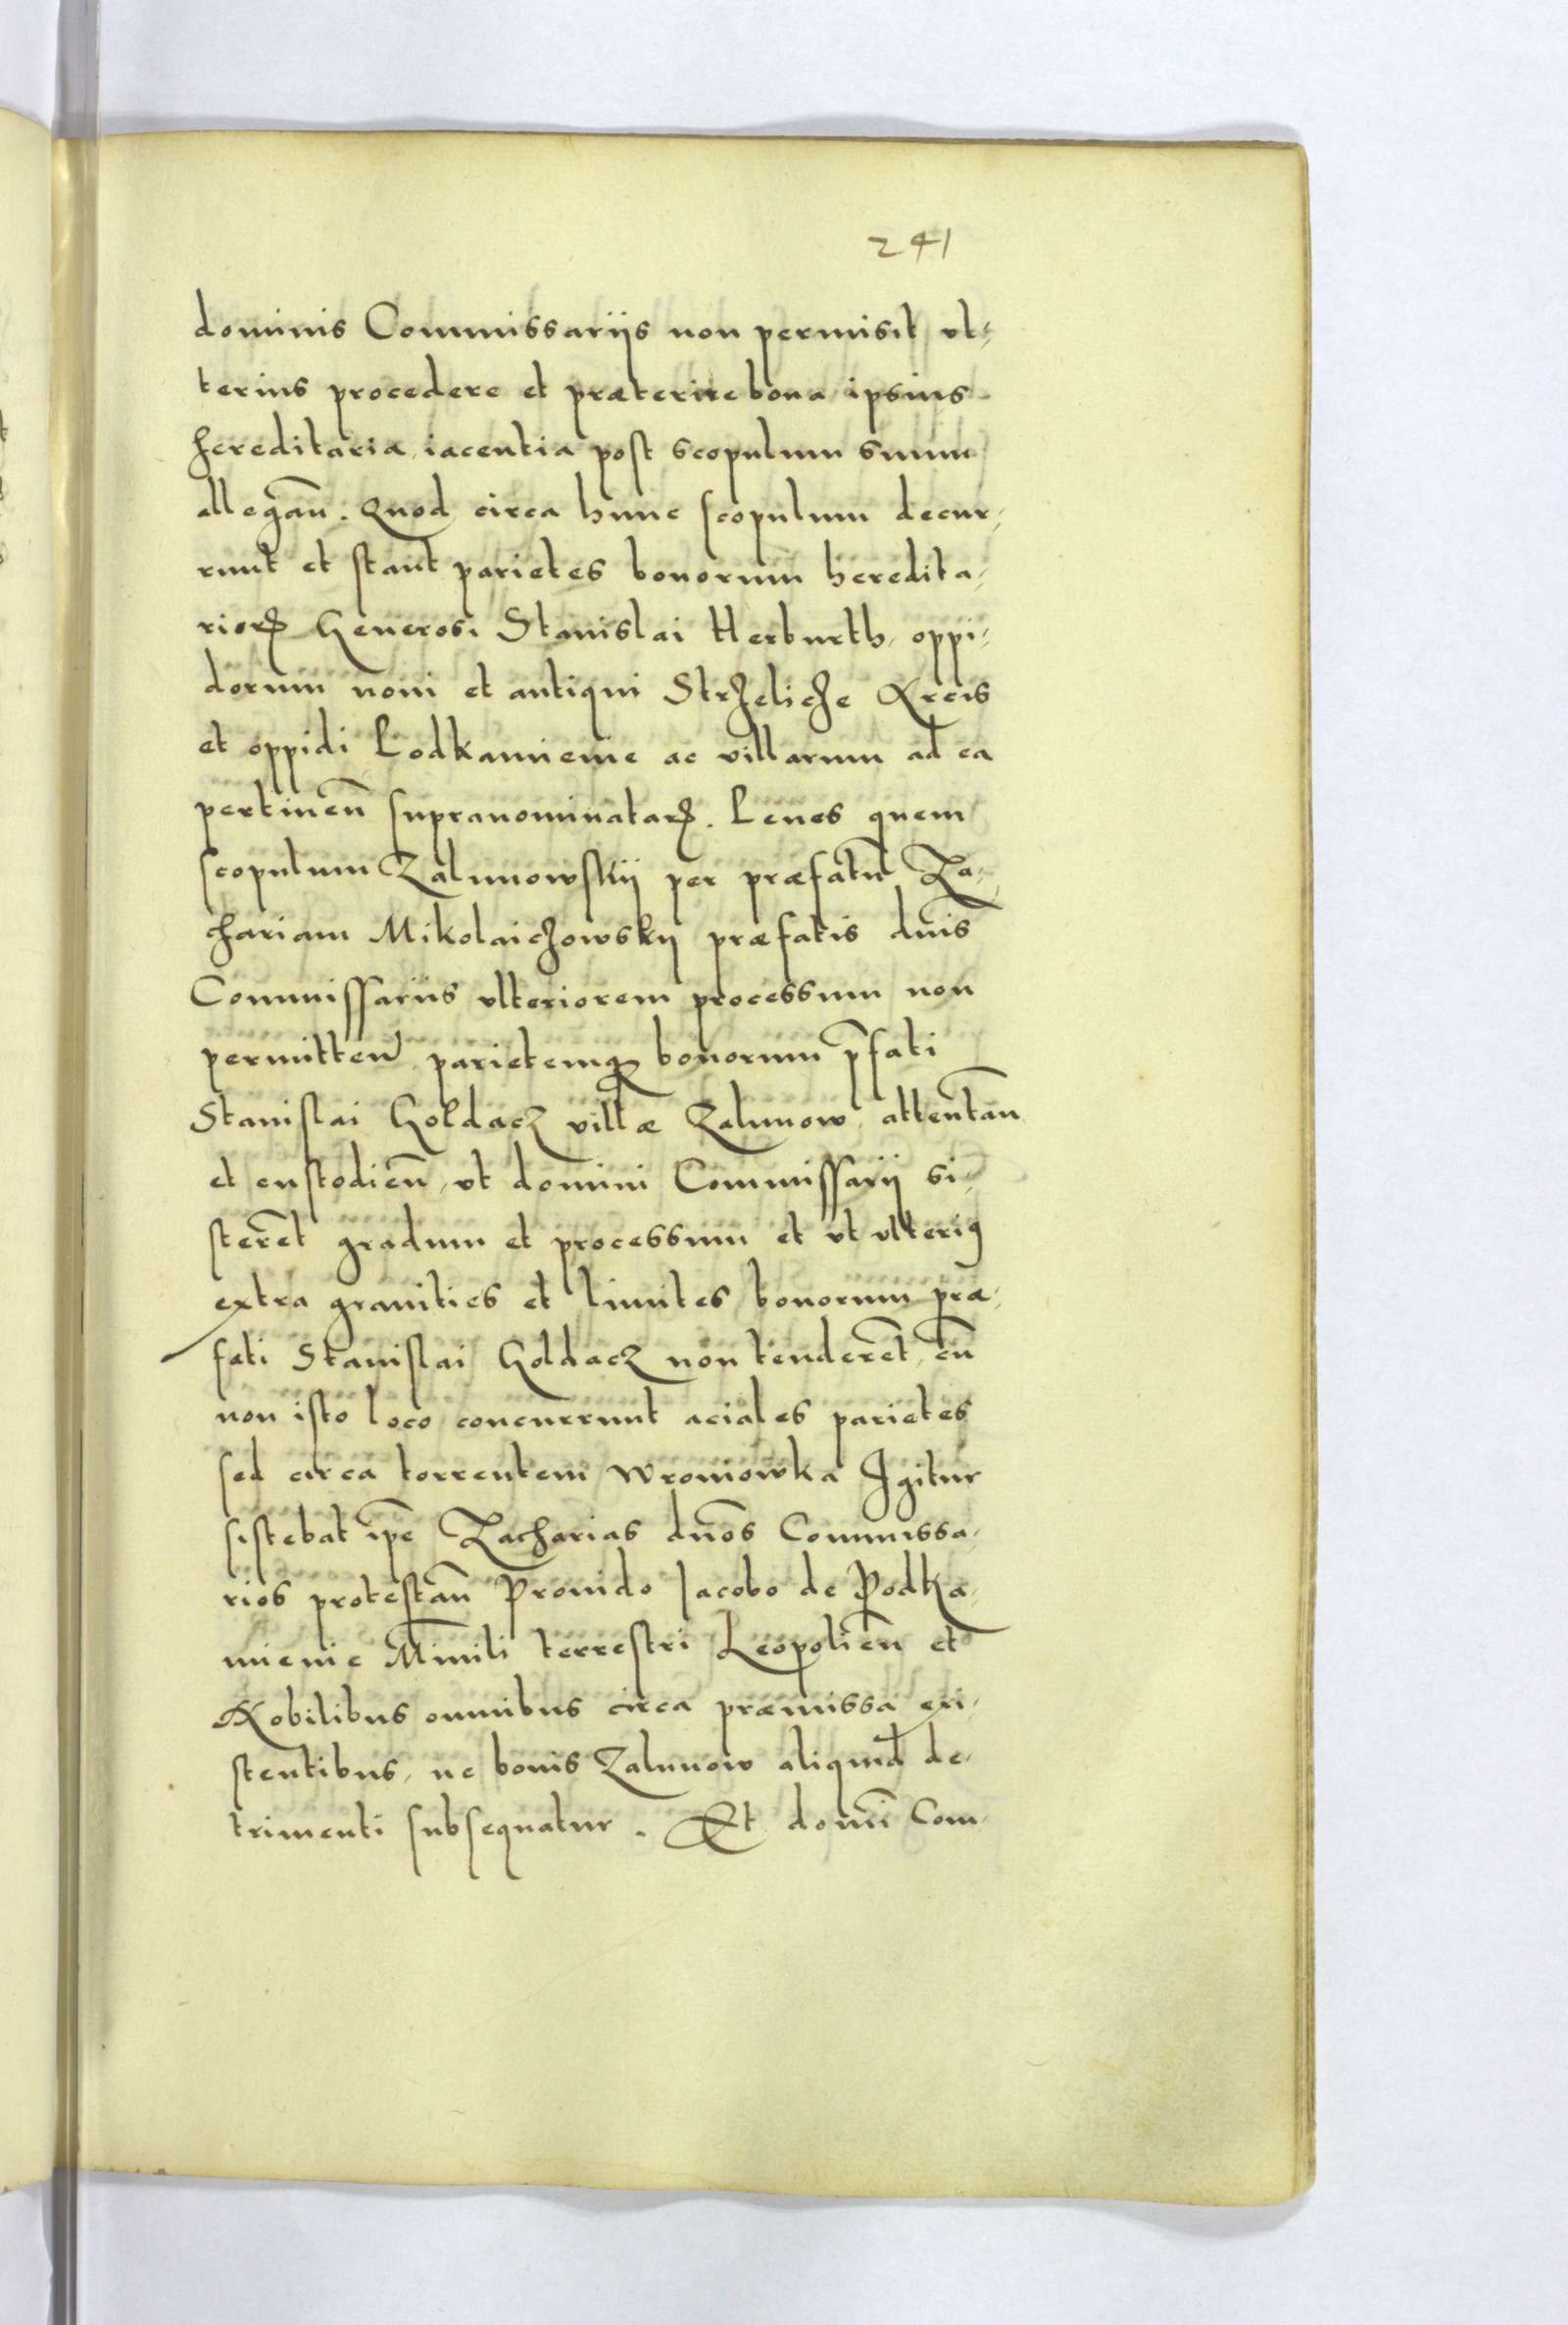 241
dominis Commissariis non permisit vl-
terius procedere et præterire bona ipsius
hereditaria iacentia post scopulum suum
allegan̄. Quod circa hunc scopulum decur-
runt et stant parietes bonorum heredita-
rioꝝ Generosi Stanislai Herburth, oppi-
dorum noui et antiqui Strzelicze Arcis
et oppidi Podkamienie ac villarum ad ea
pertinen̄ supranominataꝝ. Penes quem
scopulum Zalunowskij per præfatū Za-
chariam Mikolaiczowskij præfatis dnīs
Commissariis vlteriorem processum non
permitten̄ parietemqꝫ bonorum p̄fati
Stanislai Goldacz villæ Zalunow attentan̄
et custodien̄, vt domini Commissarij si-
sterēt gradum et processum et vt vlteriꝰ
extra granities et limites bonorum præ-
fati Stanislai Goldacz non tenderēt, cū
non isto loco concurrunt aciales parietes
sed circa torrentem Wroniowka Igitur
sistebat ip̄e Zacharias dnōs Commissa-
rios protestan̄ Prouido Iacobo de Podka-
mienie Minīli terrestri Leopolien̄ et
Nobilibus omnibus circa præmissa exi-
stentibus, ne bonis Zalunow aliquid de-
trimenti subsequatur. Et domī Com-